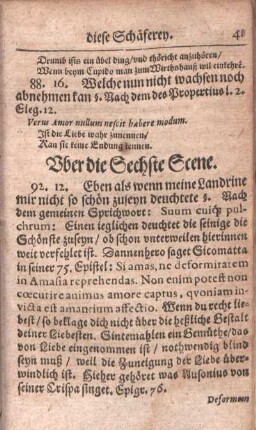 diese Schäferey. 41
Drumb ists ein übel ding/ und thöricht anzuhören/
Wenn beym Cupido man zum Wirthshauß wil einkehrē.
88. 16. Welche nun nicht wachsen noch
abnehmen kan ꝛ. Nach dem des Propertius l. 2.
Eleg. 12.
Verus Amor nullum nescit habere modum.
Ist die Liebe wahr zunennen/
Kan sie keine Endung kennen.
Vber die Sechste Scene.
92. 12. Eben als wenn meine Landrine
mir nicht so schön zuseyn deuchtete ꝛ. Nach
dem gemeinen Sprichwort: Suum cuiq; pul-
chrum: Einen ieglichen deuchtet die seinige die
Schönste zuseyn/ ob schon unterweilen hierinnen
weit verfehlet ist. Dannenhero saget Sitomatta
in seiner 75. Epistel: Si amas, ne deformitatem
in Amasia reprehendas. Non enim potest non
cœcutire animus amore captus, quoniam in-
victa est amantium affectio. Wenn du recht lie-
best/ so beklage dich nicht über die heßliche Gestalt
deiner Liebesten. Sintemahlen ein Gemüthe/ das
von Liebe eingenommen ist/ nothwendig blind
seyn muß/ weil die Zuneigung der Liebe über-
windlich ist. Hieher gehöret was Ausonius von
seiner Crispa singet. Epigr. 76.
Deformem